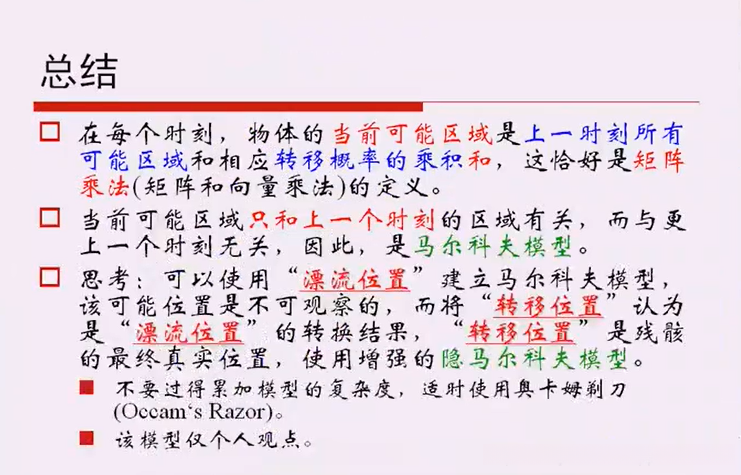 总结
在每个时刻，物体的当前可能区域是上一时刻所有
可能区域和相应转移概率的乘积和，这恰好是矩阵
乘法(矩阵和向量乘法)的定义。
当前可能区域只和上一个时刻的区域有关，而与更
上一个时刻无关，因此，是马尔科夫模型。
思考：可以使用“漂流位置”建立马尔科夫模型，
该可能位置是不可观察的，而将“转移位置”认为
是“漂流位置”的转换结果，“转移位置”是残骸
的最终真实位置，使用增强的隐马尔科夫模型。
不要过得累加模型的复杂度，适时使用奥卡姆剃刀
(Occam‘s Razor)。
该模型仅个人观点。